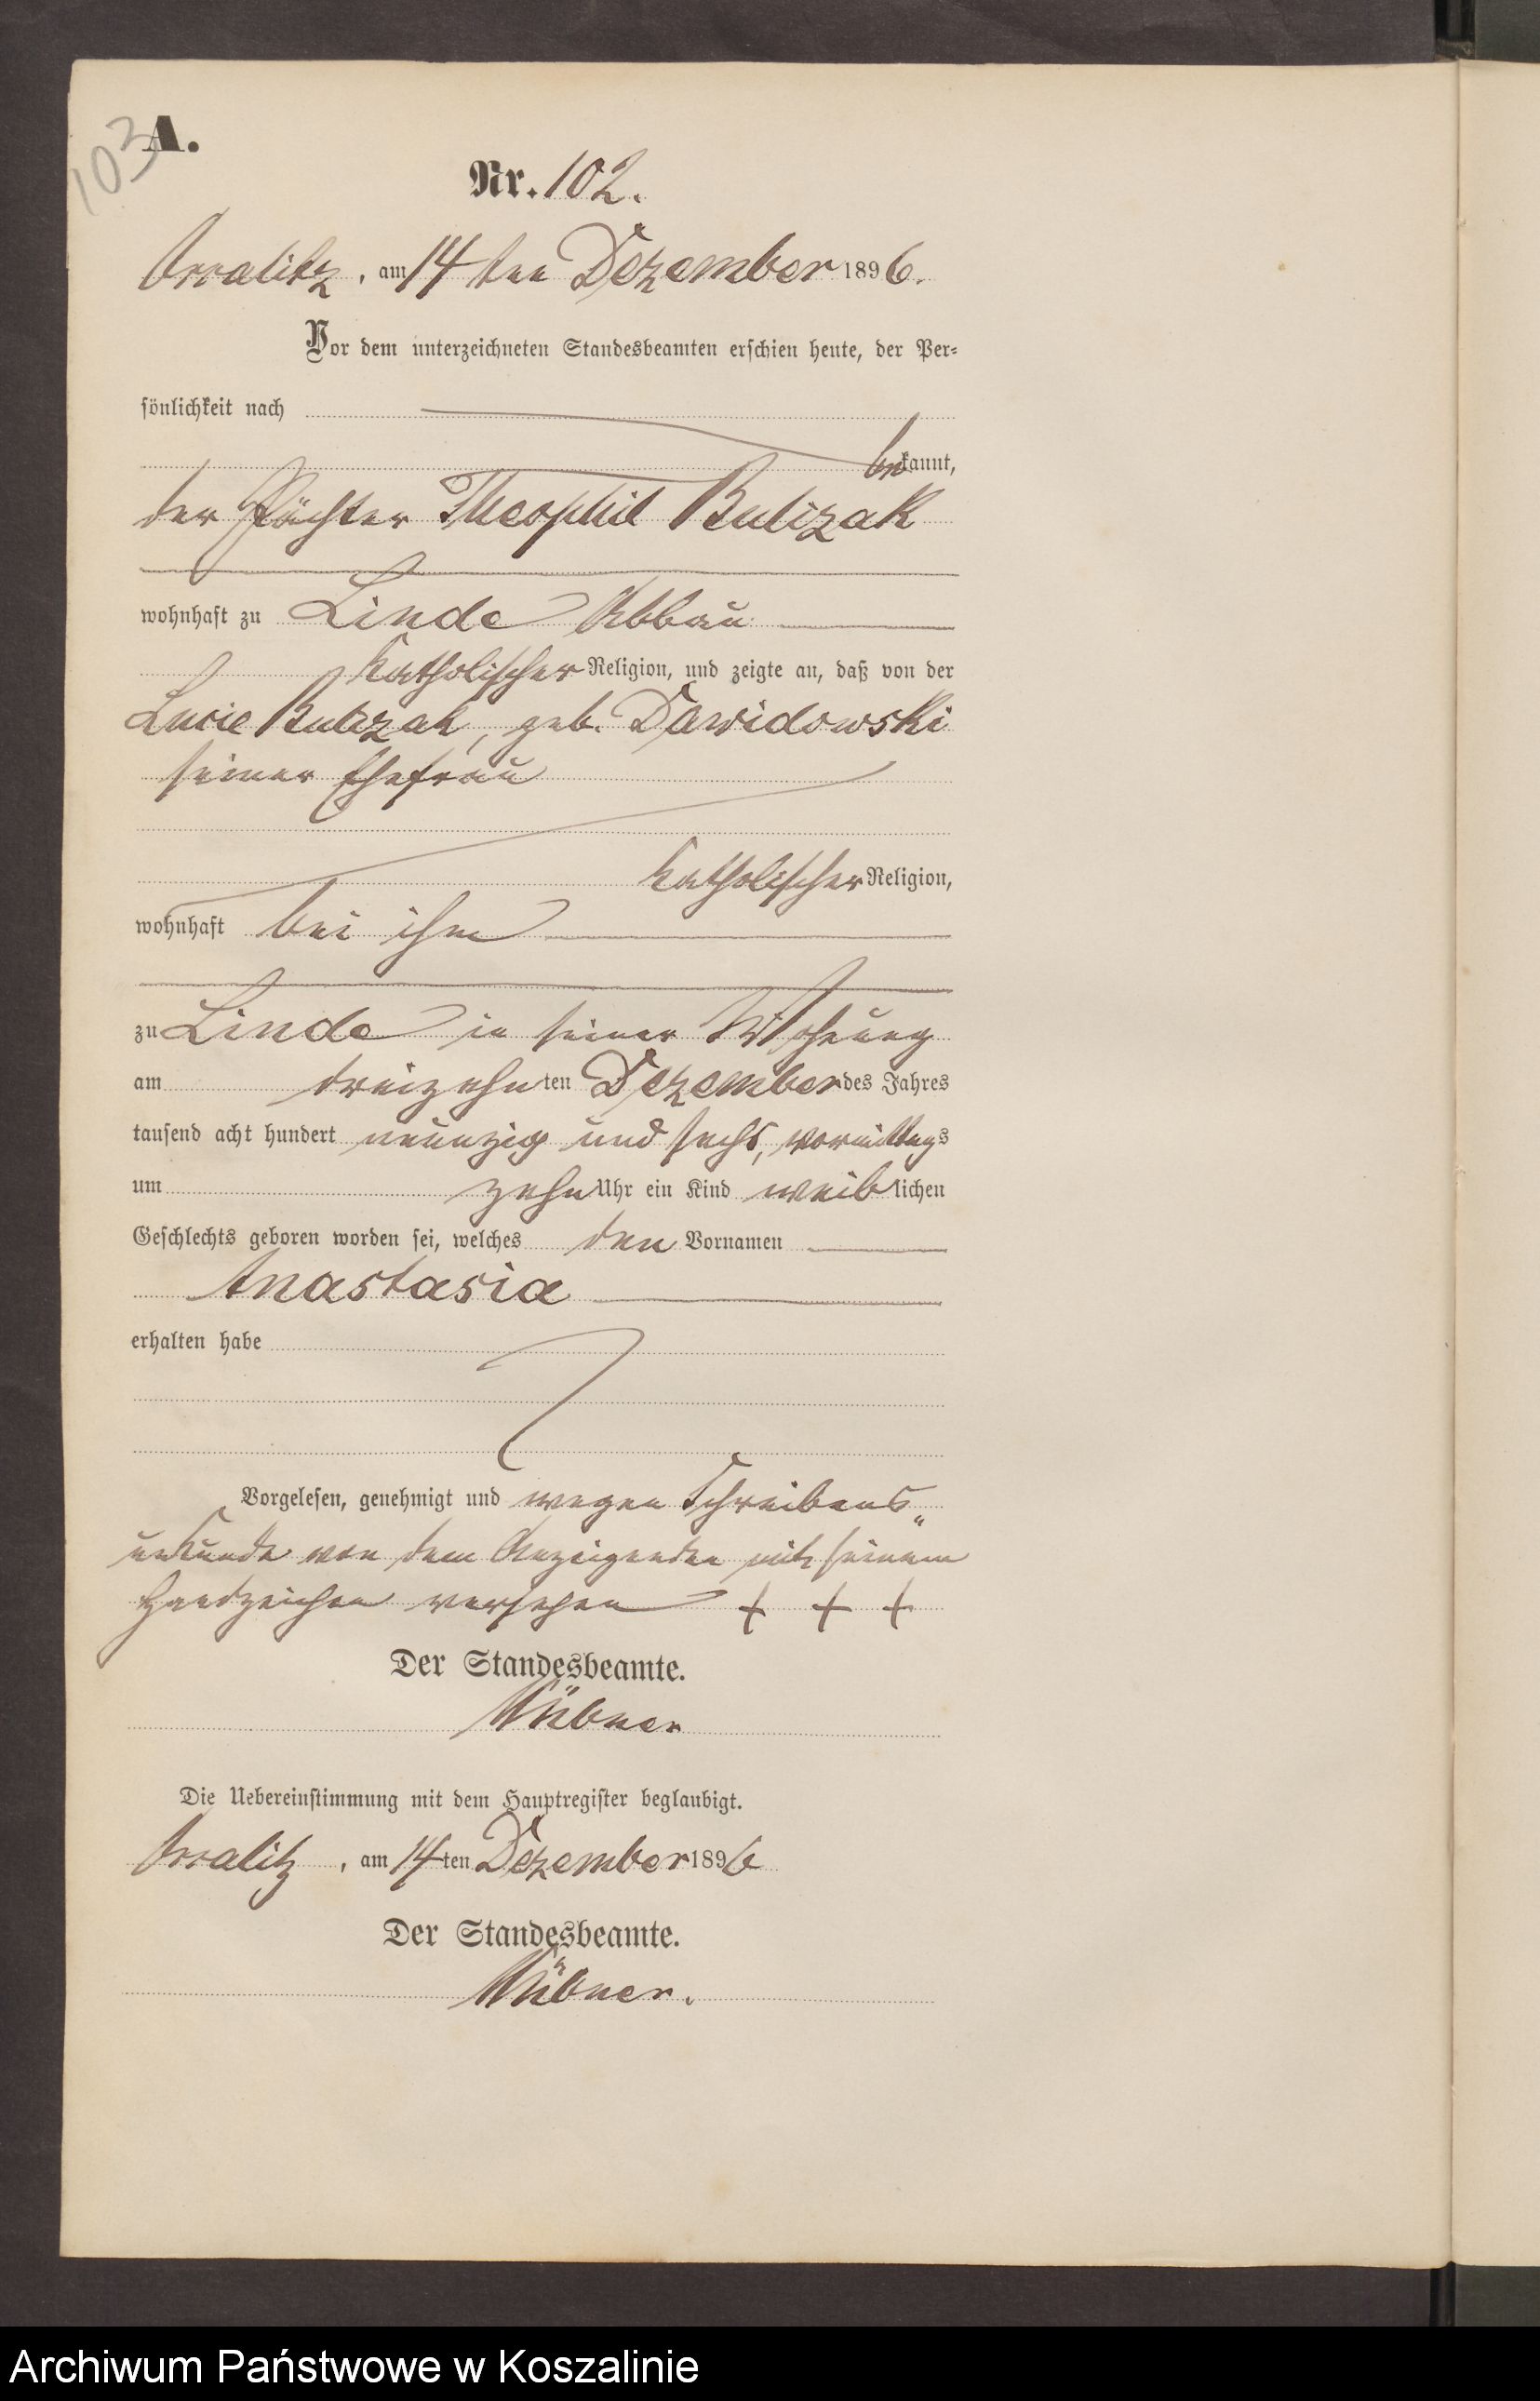 103
A.
Nr. 102.
am 14 ten Dezember 1896.
Vor dem unterzeichneten Standesbeamten erschien heute, der Per-
sönlichkeit nach
bekannt,
der Pächter Theophil
wohnhaft zu Linde Abbau
katholischer Religion, und zeigte an, daß von der
Lucie geb. Dawidowski
seiner Ehefrau
katholischer Religion,
wohnhaft bei ihm
zu Linde in seiner Wohnung
am dreizehnten Dezember des Jahres
tausend acht hundert neunzig und sechs, vormittags
um zehn Uhr ein Kind weiblichen
Geschlechts geboren worden sei, welches den Vornamen
Anastasia
erhalten habe
Vorgelesen, genehmigt und wegen Schreibens„
unkunde von dem Anzeigenden mit seinem
Handzeichen versehen + + +
Der Standesbeamte.
Die Uebereinstimmung mit dem Hauptregister beglaubigt.
am 14ten Dezember 1896
Der Standesbeamte.
Archiwum Państwowe w Koszalinie